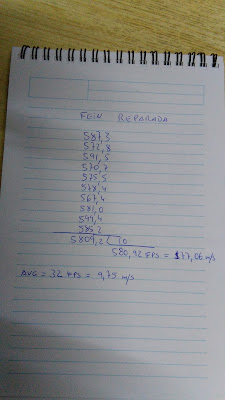 FEIN REPORADA
587,3
572,8
591,5
570,7
575,5
578,4
567,4
581,0
599,4
585,2
5809,2 10
580,92 FPS = 177,06 m/s
AVG = 32 FPS = 9,75 m/s